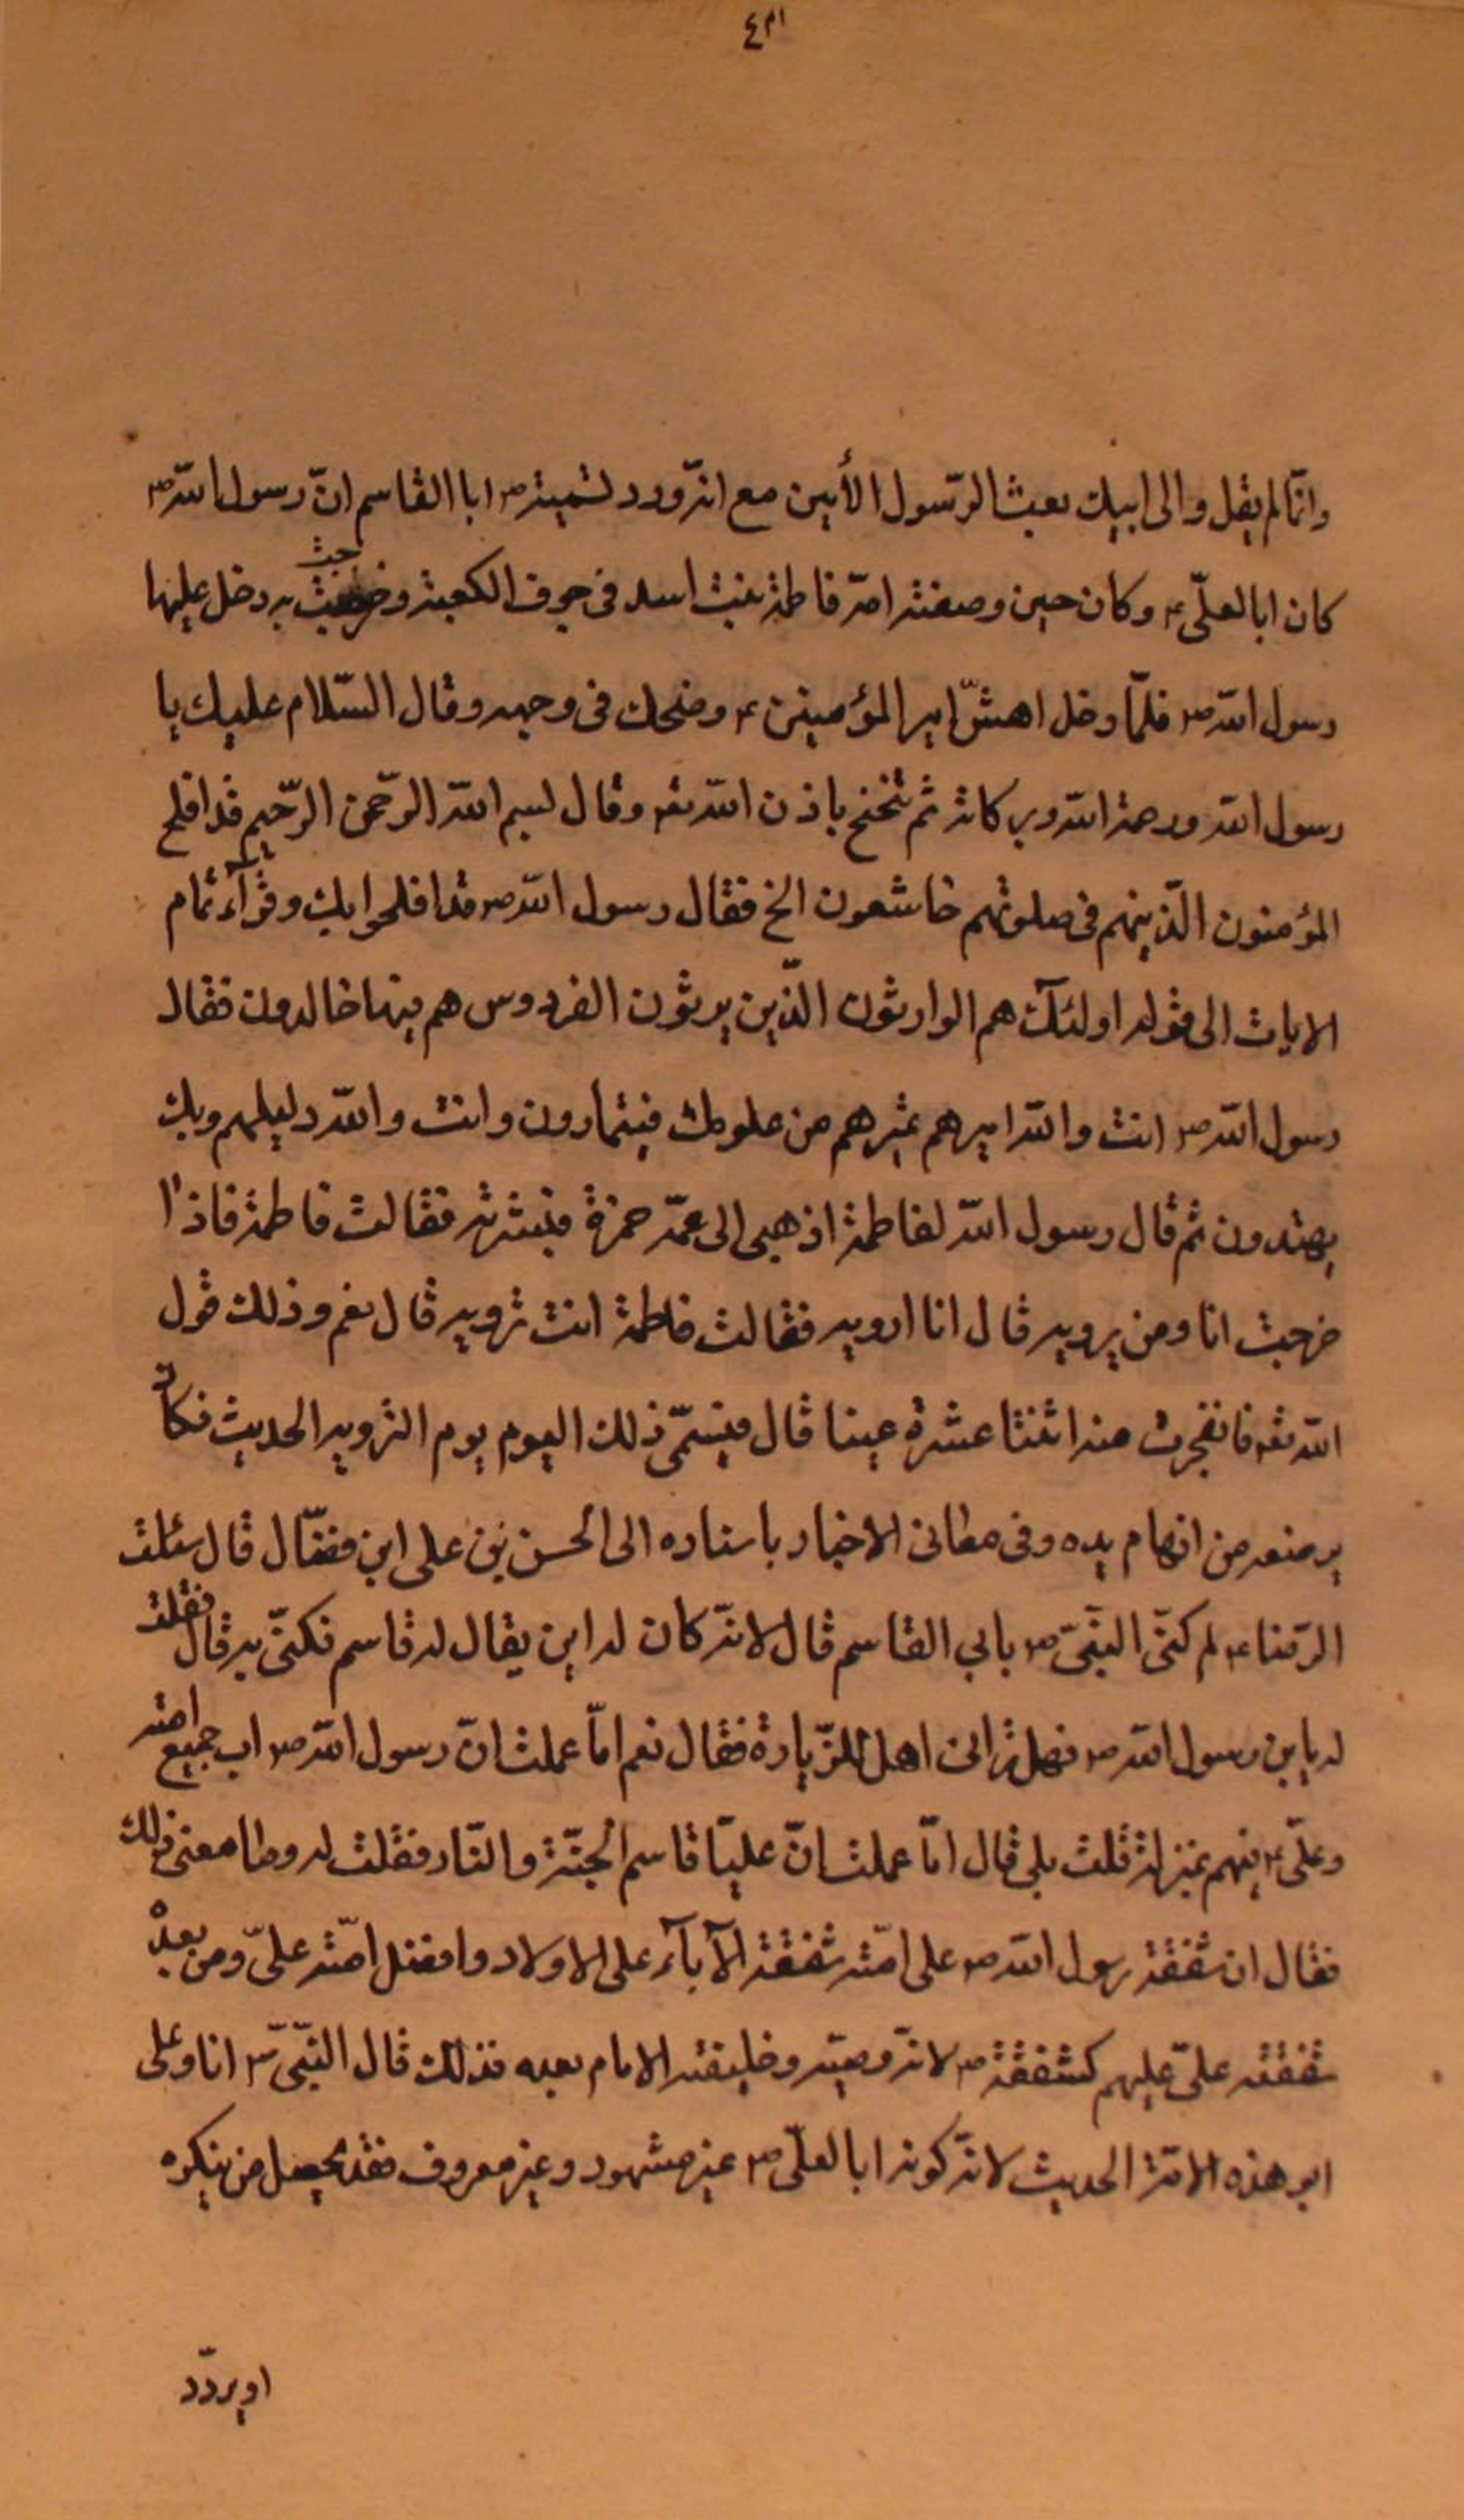 وانّما لم يقل والى ابيك بعث الرّسول الأمين مع انّه ورد تسميته ص ابا القاسم انّ رسول اللّه ص
كان ابا لعلّى ع وكان حين وضعته امّه فاطمة بنت اسد فى جوف الكعبة وخرجت به دخل عليها
رسول اللّه ص فلمّا دخل اهتشّ امير المؤمنين ع وضحك فى وجهه وقال السّلام عليك يا
رسول اللّه ورحمة اللّه وبركاته ثم تنحنح باذن اللّه تعه وقال بسم اللّه الرّحمن الرّحيم قد افلح
المؤمنون الّذينهم فى صلوتهم خاشعون الخ فقال رسول اللّه ص قد افلحوا بك وقرأ تمام
الايات الى قوله اولئك هم الوارثون الّذين يرثون الفردوس هم فيها خالدون فقال
رسول اللّه ص انت واللّه اميرهم تميرهم من علومك فيتمارون وانت واللّه دليلهم وبك
يهتدون ثم قال رسول اللّه لفاطمة اذهبى الى عمّه حمزة فبشريه فقالت فاطمة فاذا
خرجت انا ومن يرويه قال انا ارويه فقالت فاطمة انت ترويه قال نعم وذلك قول
اللّه تعه فانفجرت منه اثنتا عشرة عينا قال فيسمّى ذلك اليوم يوم التروية الحديث فكانّ
به منعه من ابهام يده وفى معانى الاخبار باسناده الى الحسن بن على ابن فضّال قال سئلت
الرّضا ع لم كنّى النّبىّ ص بابى القاسم قال لانّه كان له ابن يقال له قاسم فكنّى به قال فقلت
له يابن رسول اللّه ص فهل ترانى اهل للزّيارة فقال نعم امّا عملت انّ رسول اللّه ص اب جميع امّته
وعلّى ع فيهم بمنزلته قلت بلى قال امّا عملت انّ عليّا قاسم الجنّة والنّار فقلت له وما معنى ذلك
فقال ان شفقة رسول اللّه ص على امّته شفقة الآباء على الاولاد وافضل امّته علىّ ومن بعده
شفقته علىّ عليهم كشفقته ص لانّه وصيّه وخليفته الامام بعده فذلك قال النّبىّ ص انا وعلى
ابو هذه الامّة الحديث لانّ كونه ابا لعلّى ص غير مشهود وغير معروف فقد يحصل من ينكره
او يردّد